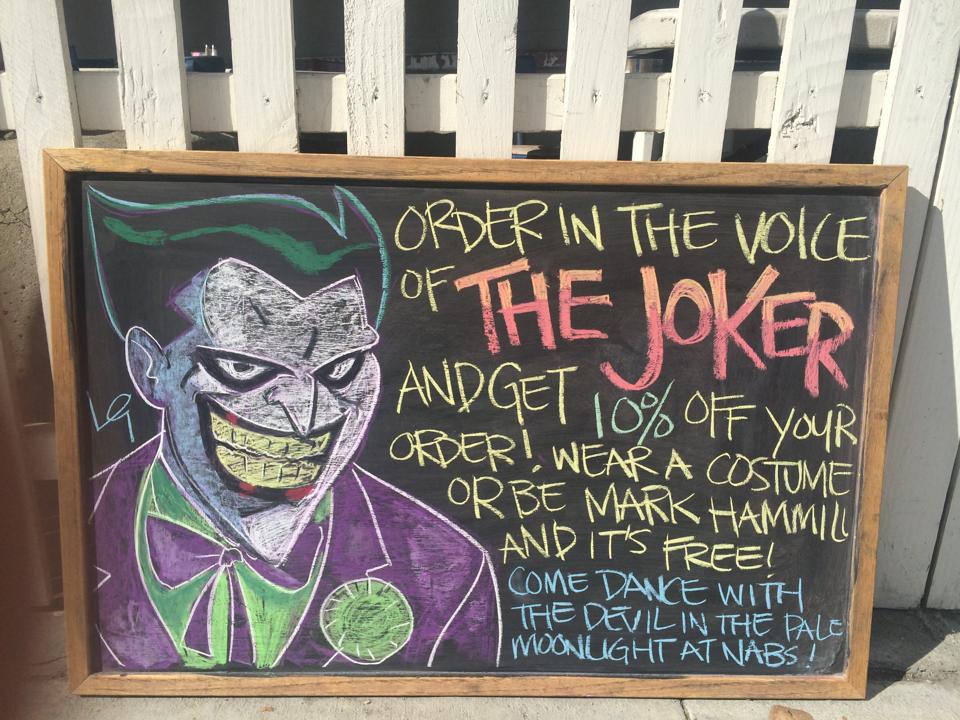 ORDER IN THE VOICE
OF THE JOKER
AND GET 10% OFF YOUR
ORDER! WEAR A COSTUME
OR BE MARK HAMMILL
AND IT'S FREE!
COME DANCE WITH
THE DEVIL IN THE PALE
MOONLIGHT AT NABS!
LG